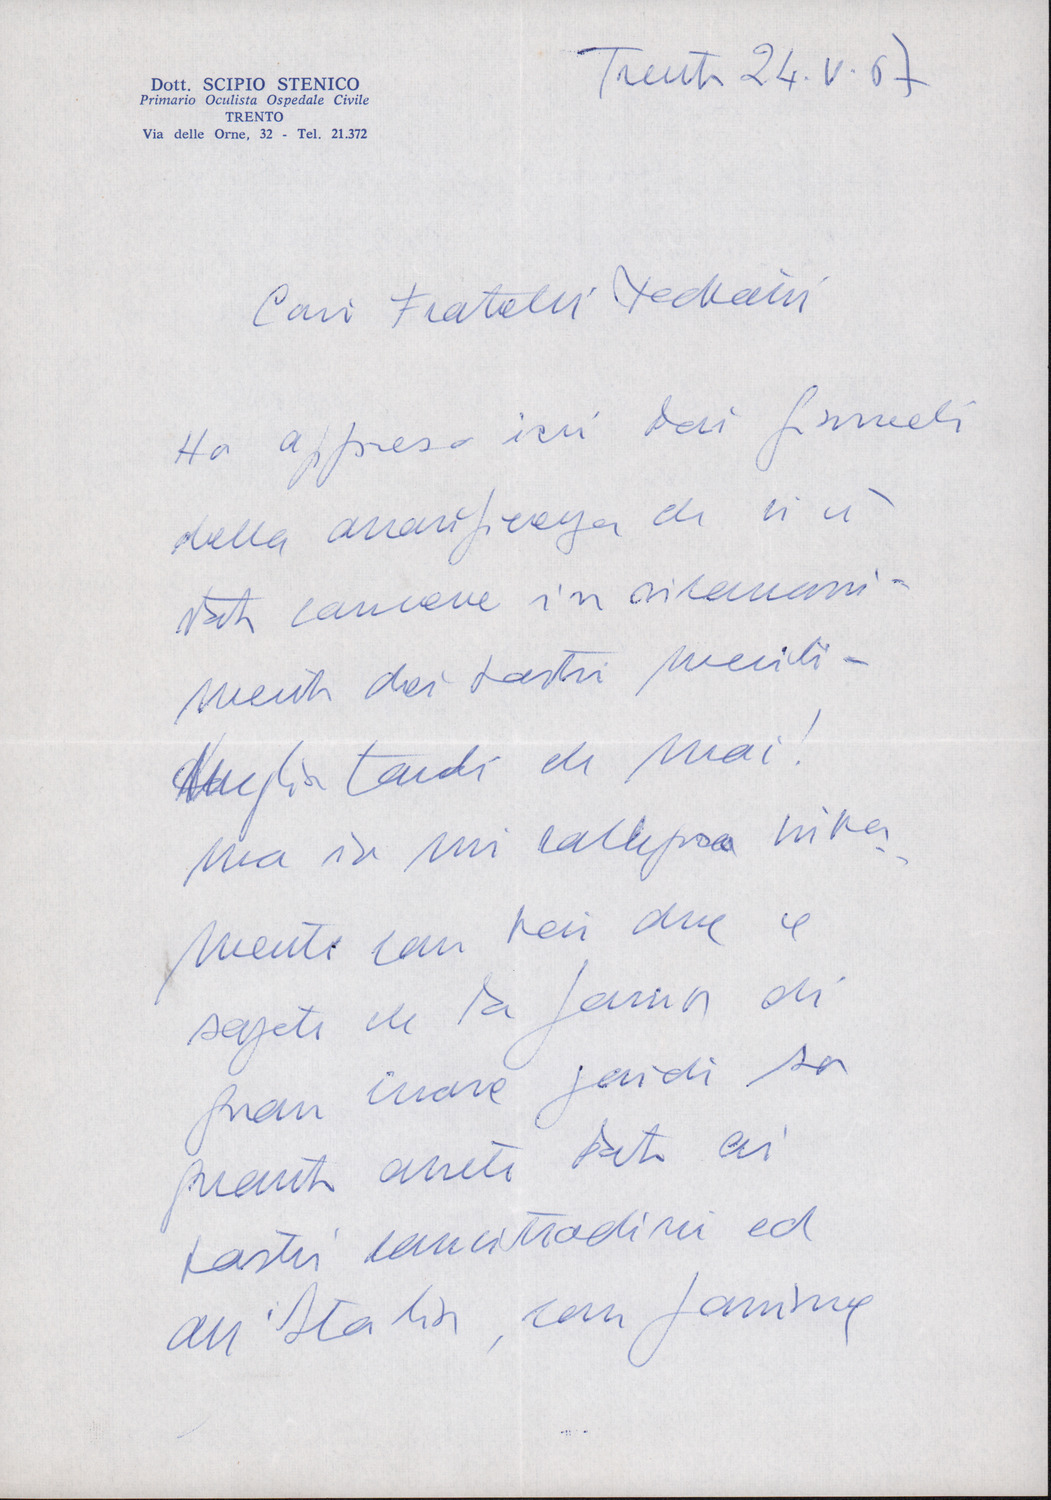 Dott. SCIPIO STENICO
Primario Oculista Ospedale Civile
TRENTO
Via delle Orne, 32 - Tel. 21.372
Trento 24.V.67
Cari Fratelli Pedrotti
Ho appreso ieri dai giornali
della onorificenza che vi è
stata concessa in riconosci-
mento dei vostri meriti -
Meglio tardi che mai!
ma io mi rallegro viva-
mente con voi due e
sapete che la famma di
gran cuore
quanto avete dato ai
vostri concittadini ed
all'Italia, con